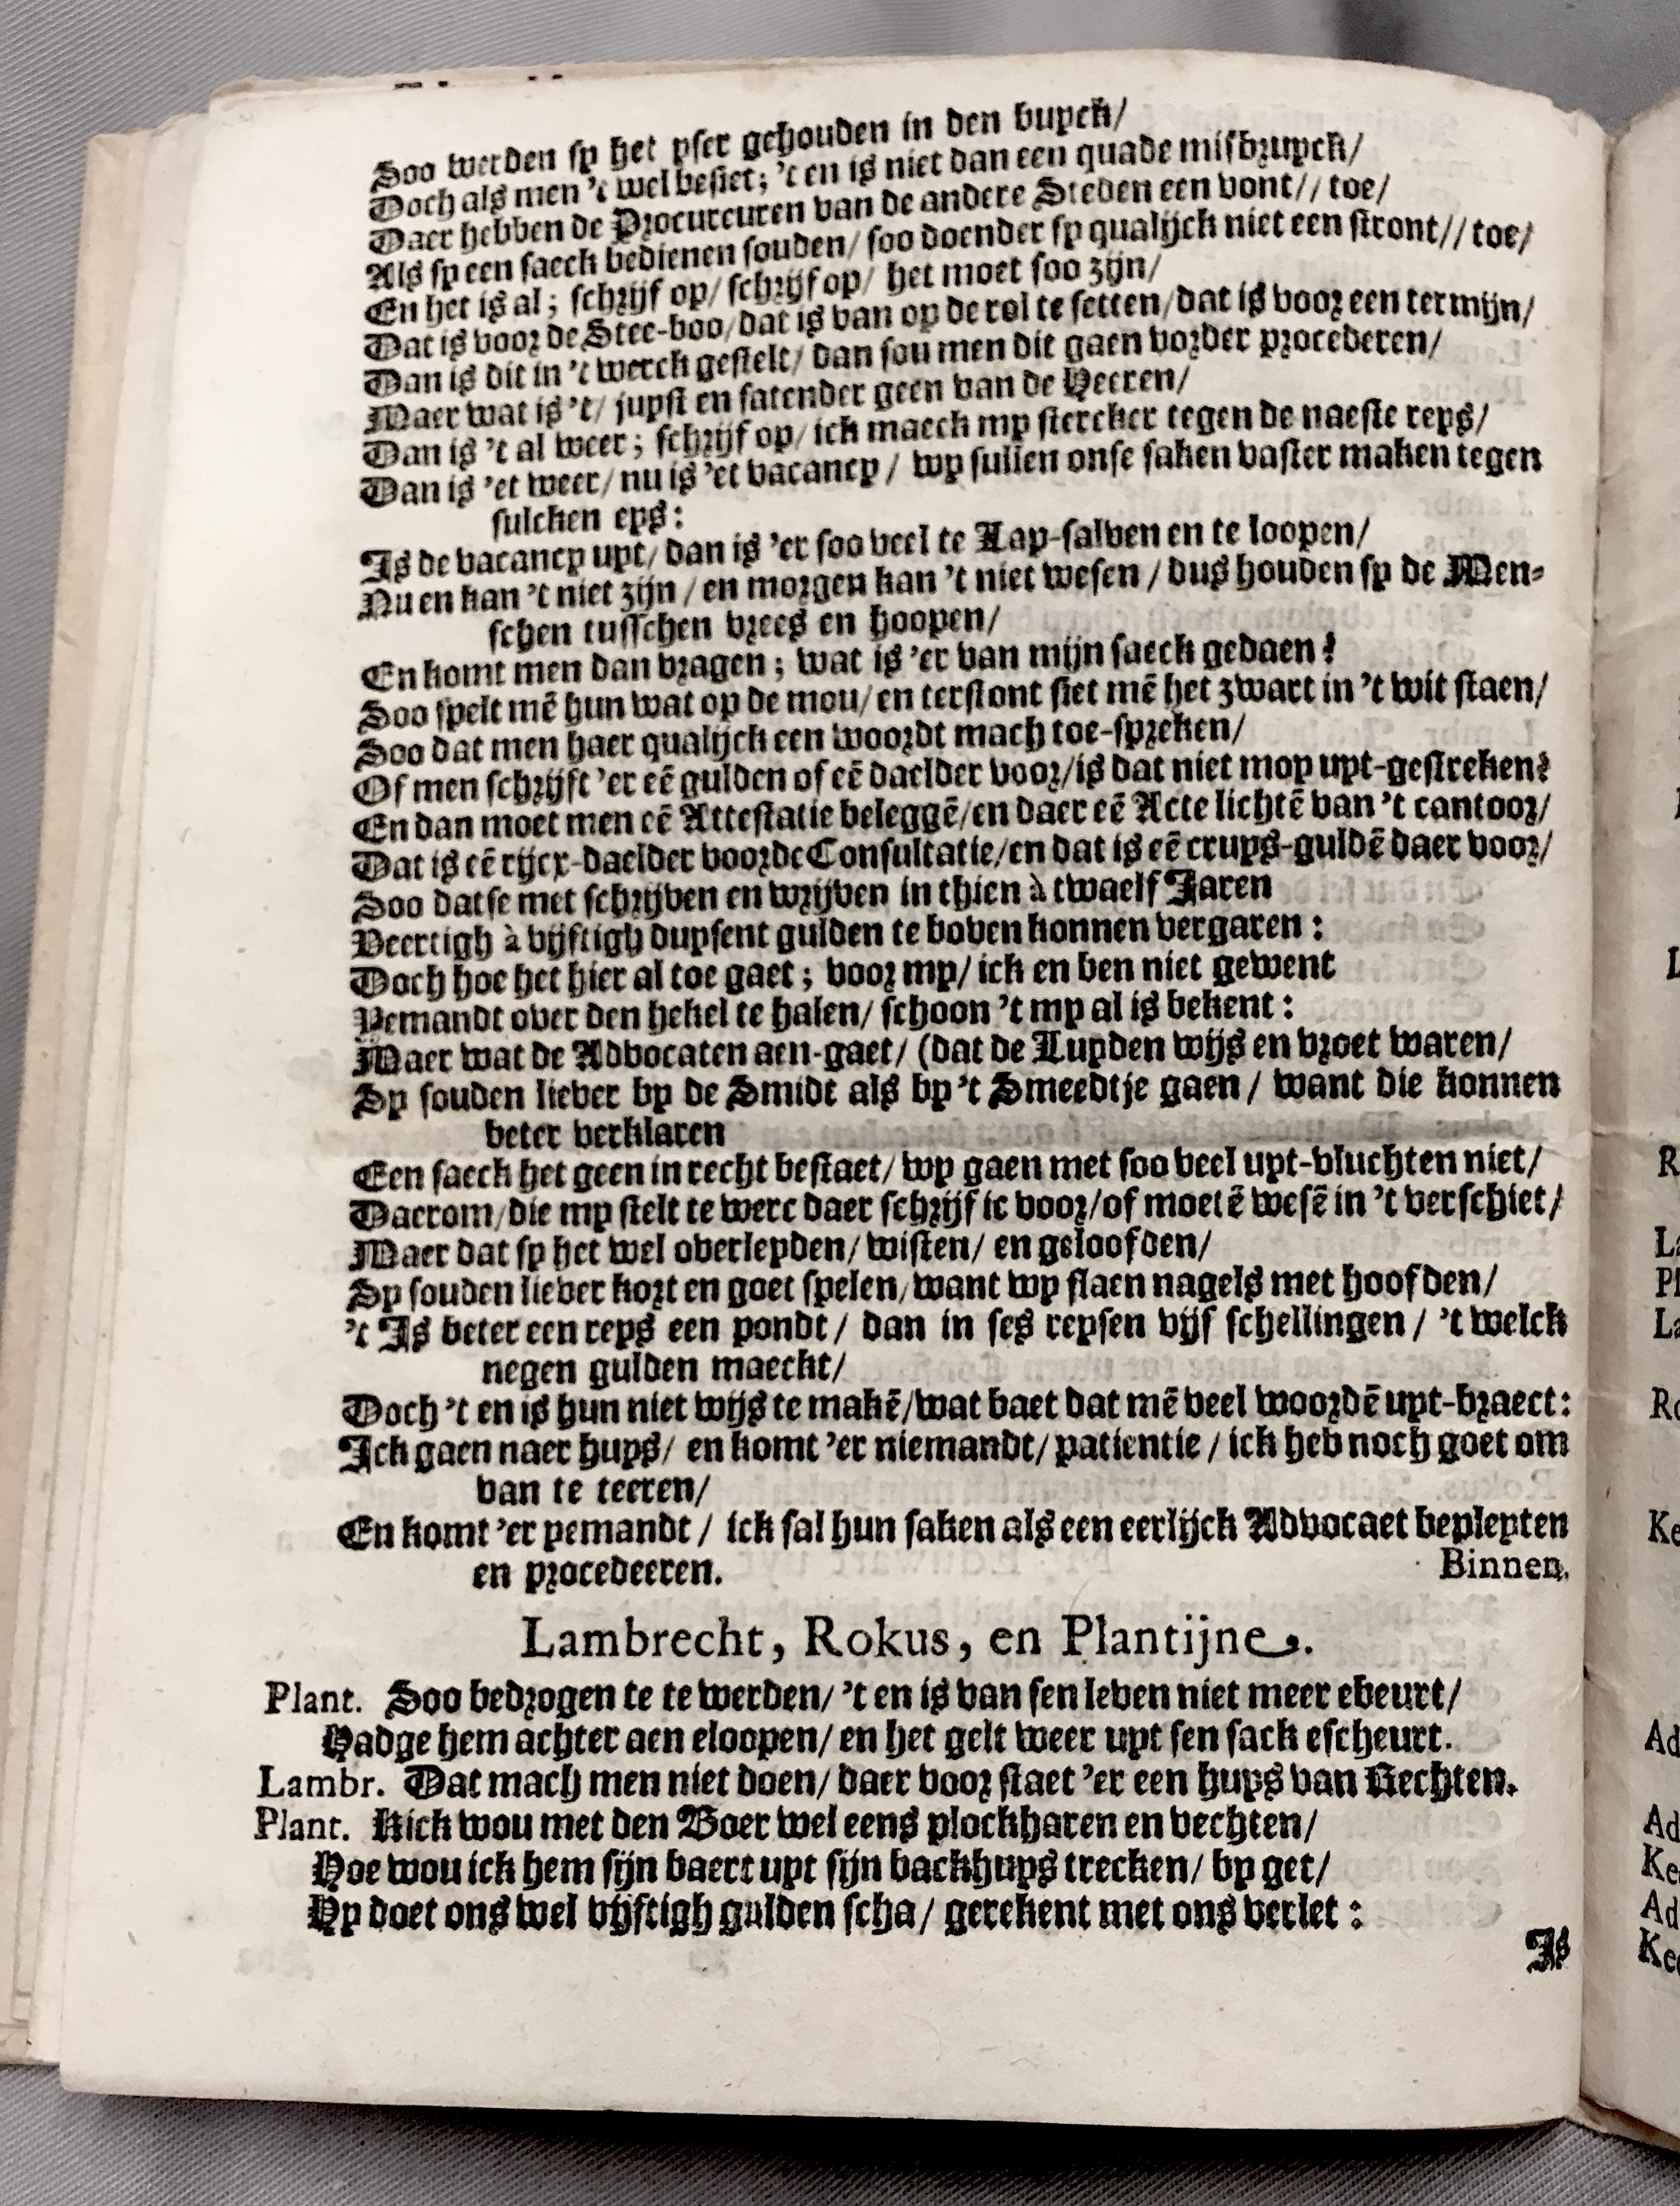 Soo werden sy het yser gehouden in den buyck/
Doch als men 't wel besiet; 't en is niet dan een quade misbruyck/
Daer hebben de Procureuren van de andere Steden een vont// toe/
Als sy een saeck bedienen souden/ soo doender sy qualijck niet een stront// toe/
En het is al; schrijf op/ schrijf op/ het moet soo zijn/
Dat is voor de Stee-boo/dat is van op de rol te setten/dat is voor een termijn/
Dan is dit in 't werck gestelt/ dan sou men dit gaen vorder procederen/
Maer wat is 't/ juyst en satender geen van de Heeren/
Dan is 't al weer; schrijf op/ ick maeck my stercker tegen de naeste reys/
Dan is 'et weer/ nu is 'et vacancy / wy sullen onse saken vaster maken tegen
sulcken eys:
Is de vacancy uyt/ dan is 'er soo veel te Lap-salven en te loopen/
Nu en kan 't niet zijn / en morgen kan 't niet wesen / dus houden sy de Men-
schen tusschen vrees en hoopen/
En komt men dan vragen; wat is 'er van mijn saeck gedaen?
Soo spelt mē hun wat op de mou/ en terstont siet mē het zwart in 't wit staen/
Soo dat men haer qualijck een woordt mach toe-spreken/
Of men schrijft 'er eē gulden of eē daelder voor/is dat niet moy uyt-gestreken?
En dan moet men eē Attestatie beleggē/en daer eē Acte lichtē van 't cantoor/
Dat is eē rijcx-daelder voor de Consultatie/en dat is eē cruys-guldē daer voor/
Soo datse met schrijven en wrijven in thien à twaelf Jaren
Veertigh à vijftigh duysent gulden te boven konnen vergaren:
Doch hoe het hier al toe gaet; voor my/ ick en ben niet gewent
Yemandt over den hekel te halen/ schoon 't my al is bekent:
Maer wat de Advocaten aen-gaet/ (dat de Luyden wijs en vroet waren/
Sy souden liever by de Smidt als by 't Smeedtje gaen/ want die konnen
beter verklaren
Een saeck het geen in recht bestaet/ wy gaen met soo veel uyt-vluchten niet/
Daerom/die my stelt te werc daer schrijf ic voor/of moetē wesē in 't verschiet/
Maer dat sy het wel overleyden/ wisten/ en geloofden/
Sy souden liever kort en goet spelen/want wy slaen nagels met hoofden/
't Is beter een reys een pondt/ dan in ses reysen vijf schellingen / 't welck
negen gulden maeckt/
Doch 't en is hun niet wijs te makē/wat baet dat mē veel woordē uyt-braect:
Ick gaen naer huys/ en komt 'er niemandt/ patientie / ick heb noch goet om
van te teeren/
En komt 'er yemandt / ick sal hun saken als een eerlijck Advocaet bepleyten
en procedeeren. Binnen.
Lambrecht, Rokus, en Plantijne.
Plant. Soo bedrogen te te werden/ 't en is van sen leven niet meer ebeurt/
Hadge hem achter aen eloopen/ en het gelt weer uyt sen sack escheurt.
Lambr. Dat mach men niet doen/ daer voor staet 'er een huys van Rechten.
Plant. Kick wou met den Boer wel eens plockharen en vechten/
Hoe wou ick hem sijn baert uyt sijn backhuys trecken/ by get/
Hy doet ons wel vijftigh gulden scha/ gerekent met ons verlet:
Is
L
R
La
Pl
La
Ro
Ke
Ad
Ad
Ke
Ad
Kee